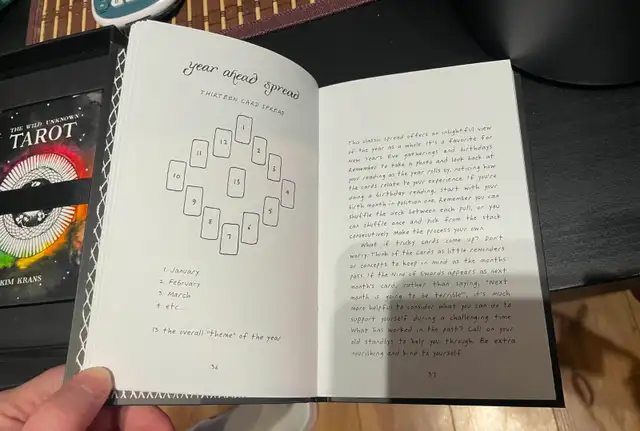 THE WILD UNKNOWN
TAROT
KIM KRANS
year ahead spread
THIRTEEN CARD SPREAD
1
2
3
4
5
6
7
8
9
10
11
12
13
1. January
2. February
3. March
4. etc...
13. the overall "theme" of the year
36
This classic spread offers an insightful view
of the year as a whole. It's a favorite for
New Year's Eve gatherings and birthdays.
Remember to take a photo and look back at
your reading as the year rolls by, noticing how
the cards relate to your experience. If you're
doing a birthday reading, start with your
birth month in position one. Remember you can
shuffle the deck between each pull, or you
can shuffle once and pick from the stack
consecutively. Make the process your own.
What if tricky cards come up? Don't
worry. Think of the cards as little reminders
or concepts to keep in mind as the months
pass. If the Nine of Swords appears as next
month's card, rather than saying, "Next
month is going to be terrible", it's much
more helpful to consider what you can do to
support yourself during a challenging time.
What has worked in the past? Call on your
old standbys to help you through. Be extra
nourishing and kind to yourself.
37